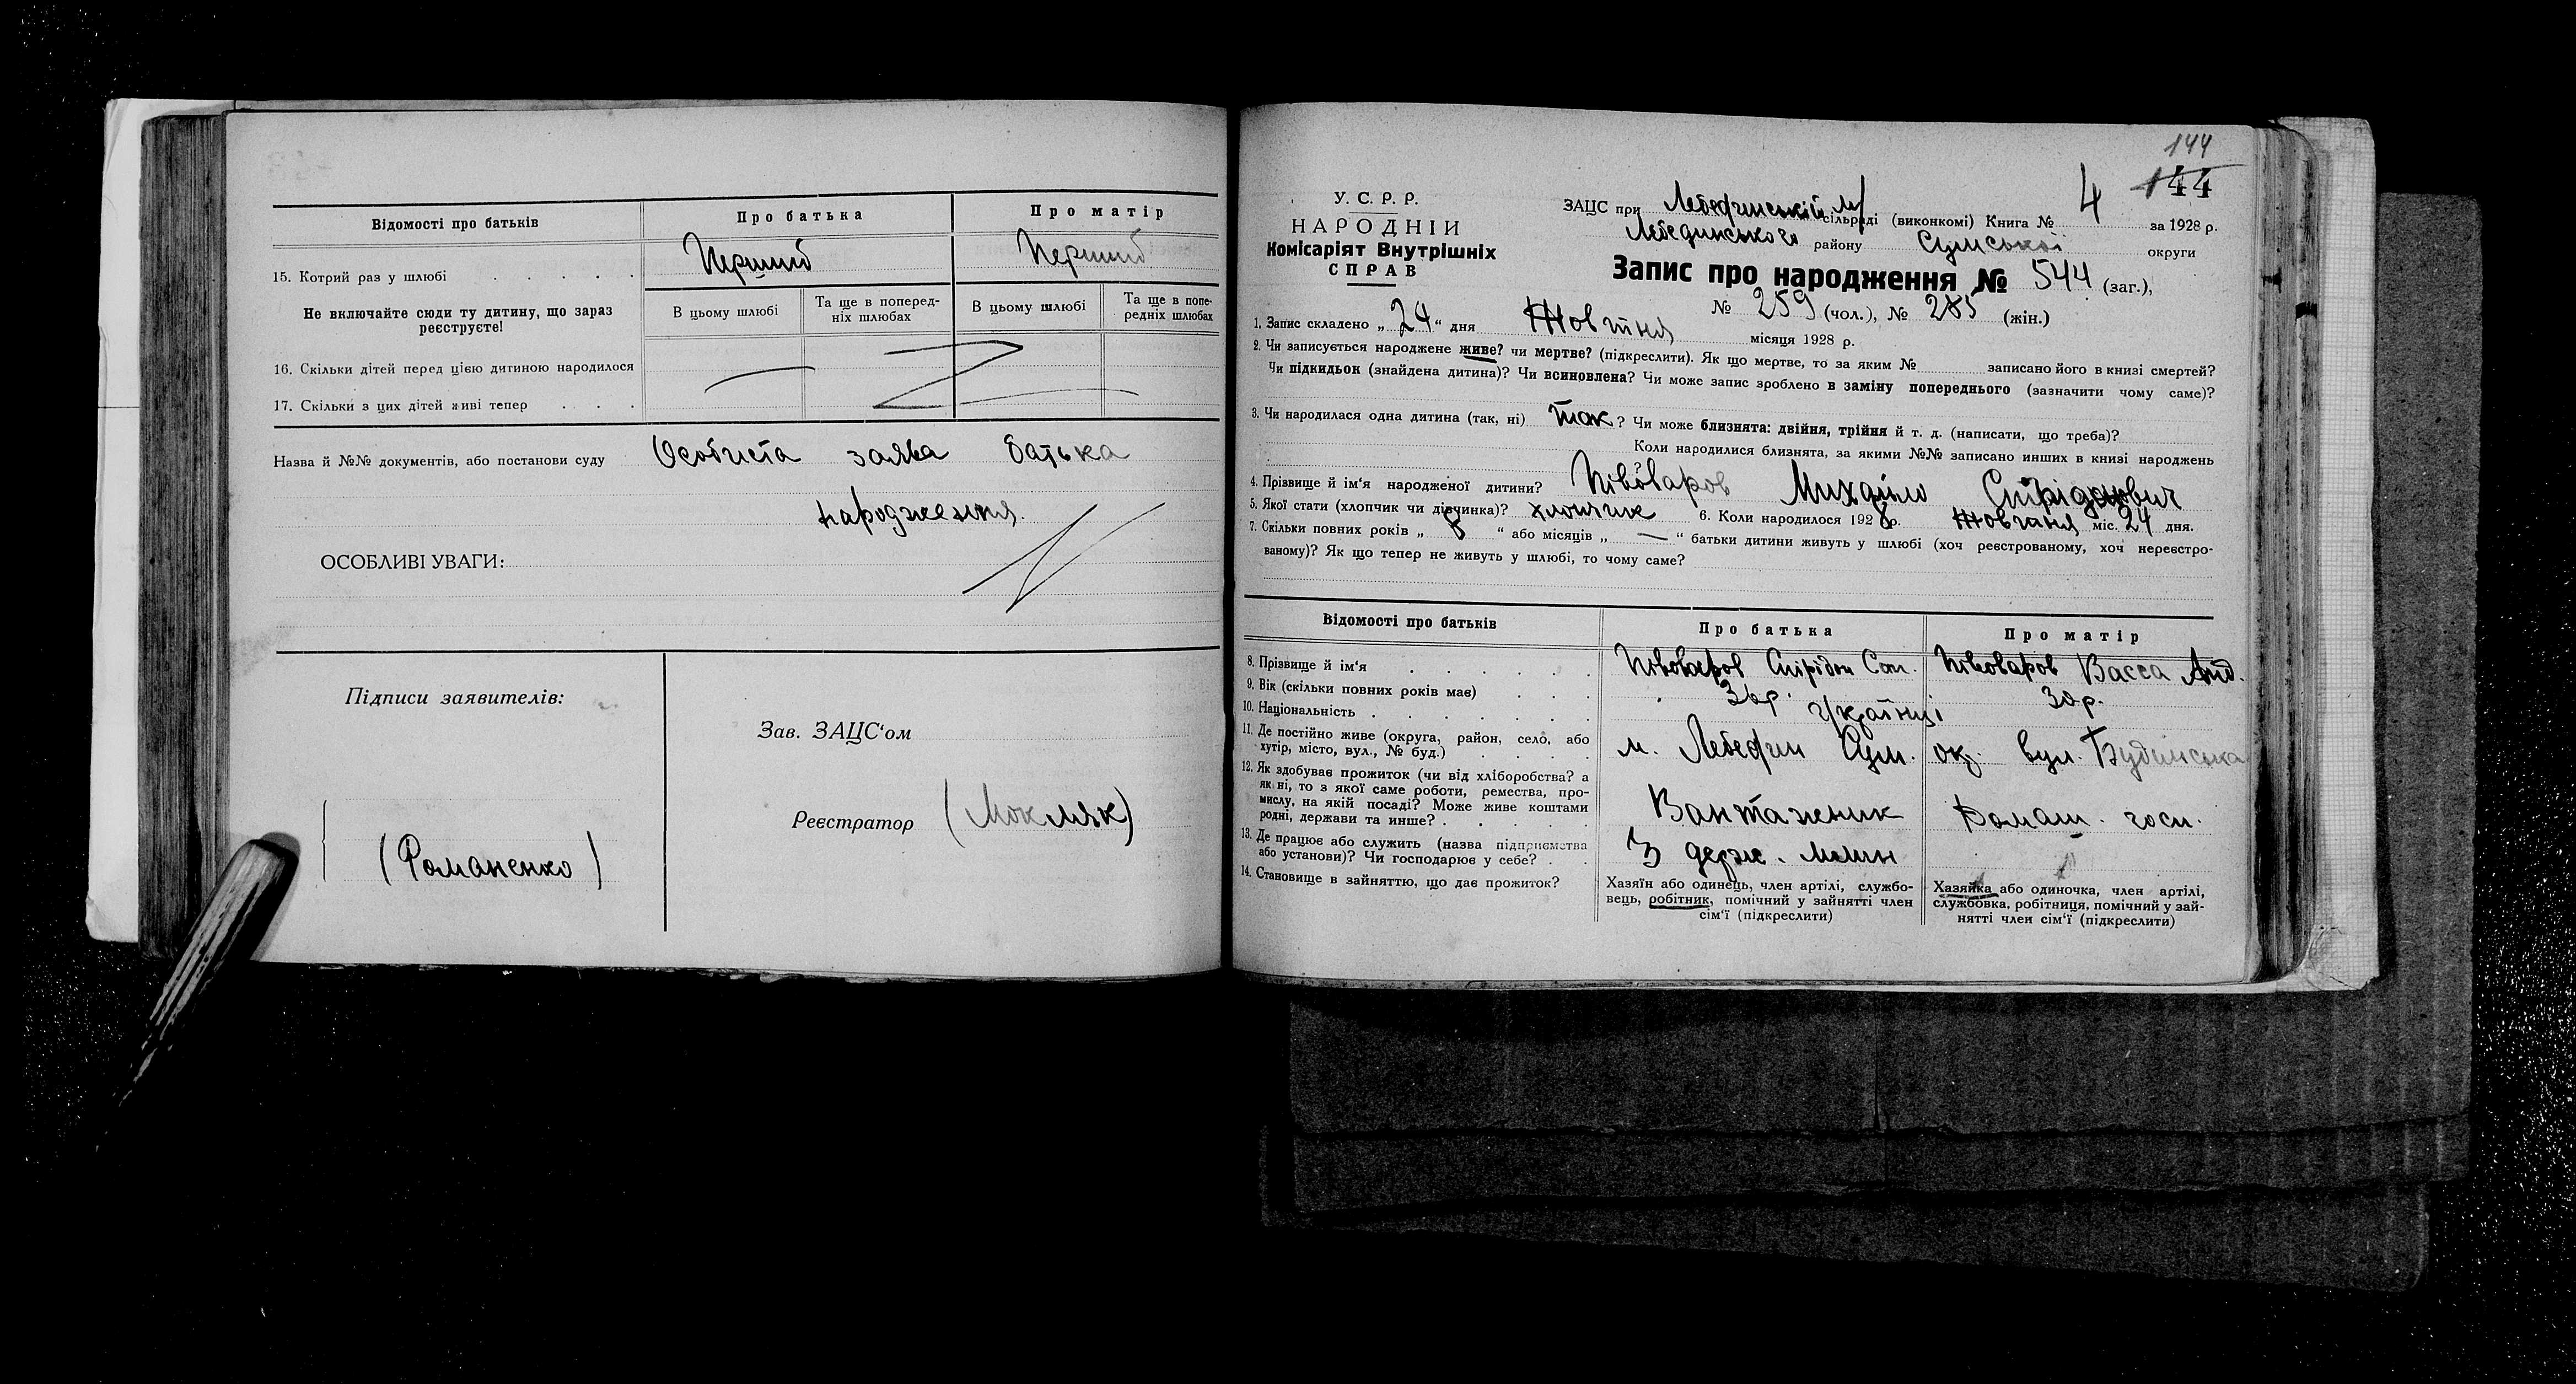 Відомості про батьків
Про батька
Про матір
15. Котрий раз у шлюбі
Перший
Перший
Не включайте сюди ту дитину, що зараз реєструєте!
В цьому шлюбі
Та ще в поперед-
ніх шлюбах
В цьому шлюбі
Та ще в попе-
редніх шлюбах
16. Скільки дітей перед цією дитиною народилося
17. Скільки з цих дітей живі тепер
Назва й №№ документів, або постанови суду Особиста заява батька
народження.
ОСОБЛИВІ УВАГИ:
Підписи заявителів:
(Романенко)
Зав. ЗАЦС'ом
Реєстратор (Мокляк)
144
144
У. С. Р. Р.
НАРОДНІЙ
Комісаріят Внутрішніх
СПРАВ
ЗАЦС при Лебединській м/сільраді (виконкомі) Книга № 4 за 1928 р.
Лебединського району Сумської округи
Запис про народження № 544 (заг.),
№ 259 (чол.), № 285 (жін.)
1. Запис складено „ 24 “ дня Жовтня місяця 1928 р.
2. Чи записується народжене живе? чи мертве? (підкреслити). Як що мертве, то за яким № записано його в книзі смертей?
Чи підкидьок (знайдена дитина)? Чи всиновлена? Чи може запис зроблено в заміну попереднього (зазначити чому саме)?
3. Чи народилася одна дитина (так, ні) так? Чи може близнята: двійня, трійня й т. д. (написати, що треба)?
Коли народилися близнята, за якими №№ записано инших в книзі народжень
?
4. Прізвище й ім'я народженої дитини? Півоваров Михайло Спірідонович
5. Якої стати (хлопчик чи дівчинка)? хлопчик 6. Коли народилося 1928 р. Жовтня міс. 24 дня.
7. Скільки повних років „ 8 “ або місяців „ — “ батьки дитини живуть у шлюбі (хоч реєстрованому, хоч нереєстро-
ваному)? Як що тепер не живуть у шлюбі, то чому саме?
Відомості про батьків
Про батька
Про матір
8. Прізвище й ім'я
Півоваров Спірідон Сон.
Півоваров Васса Анд.
9. Вік (скільки повних років має)
30р.
10. Національність
Українці
11. Де постійно живе (округа, район, село, або
хутір, місто, вул., № буд.)
м. Лебедин Сум. ок. вул. Будинська
12. Як здобуває прожиток (чи від хліборобства? а
як ні, то з якої саме роботи, ремества, про-
мислу, на якій посаді? Може живе коштами
родні, держави та инше?
Вантажник
Домаш. госп.
13. Де працює або служить (назва підприємства
або установи)? Чи господарює у себе?
З держ. млин
14. Становище в зайняттю, що дає прожиток?
Хазяїн або одинець, член артілі, службо-
вець, робітник, помічний у зайнятті член
сім'ї (підкреслити)
Хазяйка або одиночка, член артілі,
службовка, робітниця, помічний у зай-
нятті член сім'ї (підкреслити)